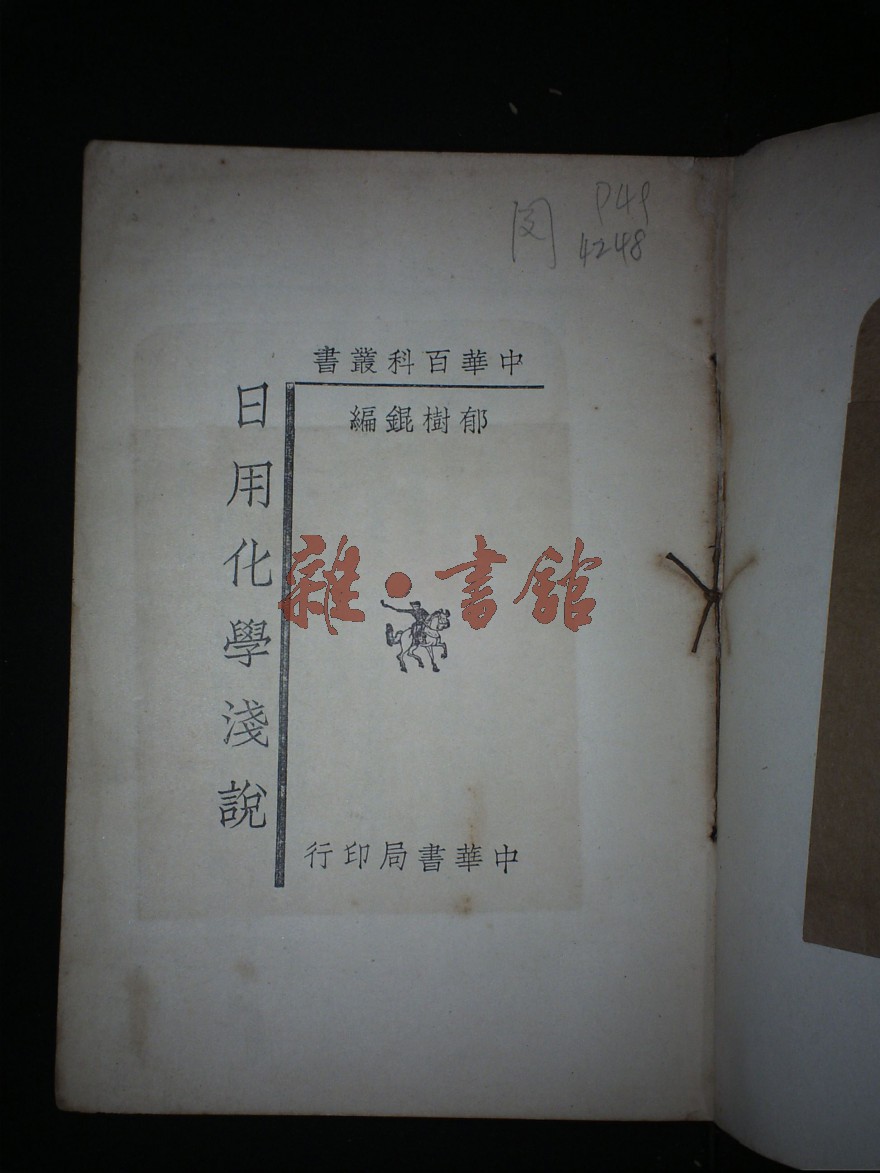 P49
4248
中華百科叢書
郁樹錕編
日用化學淺說
雜·書館
中華書局印行